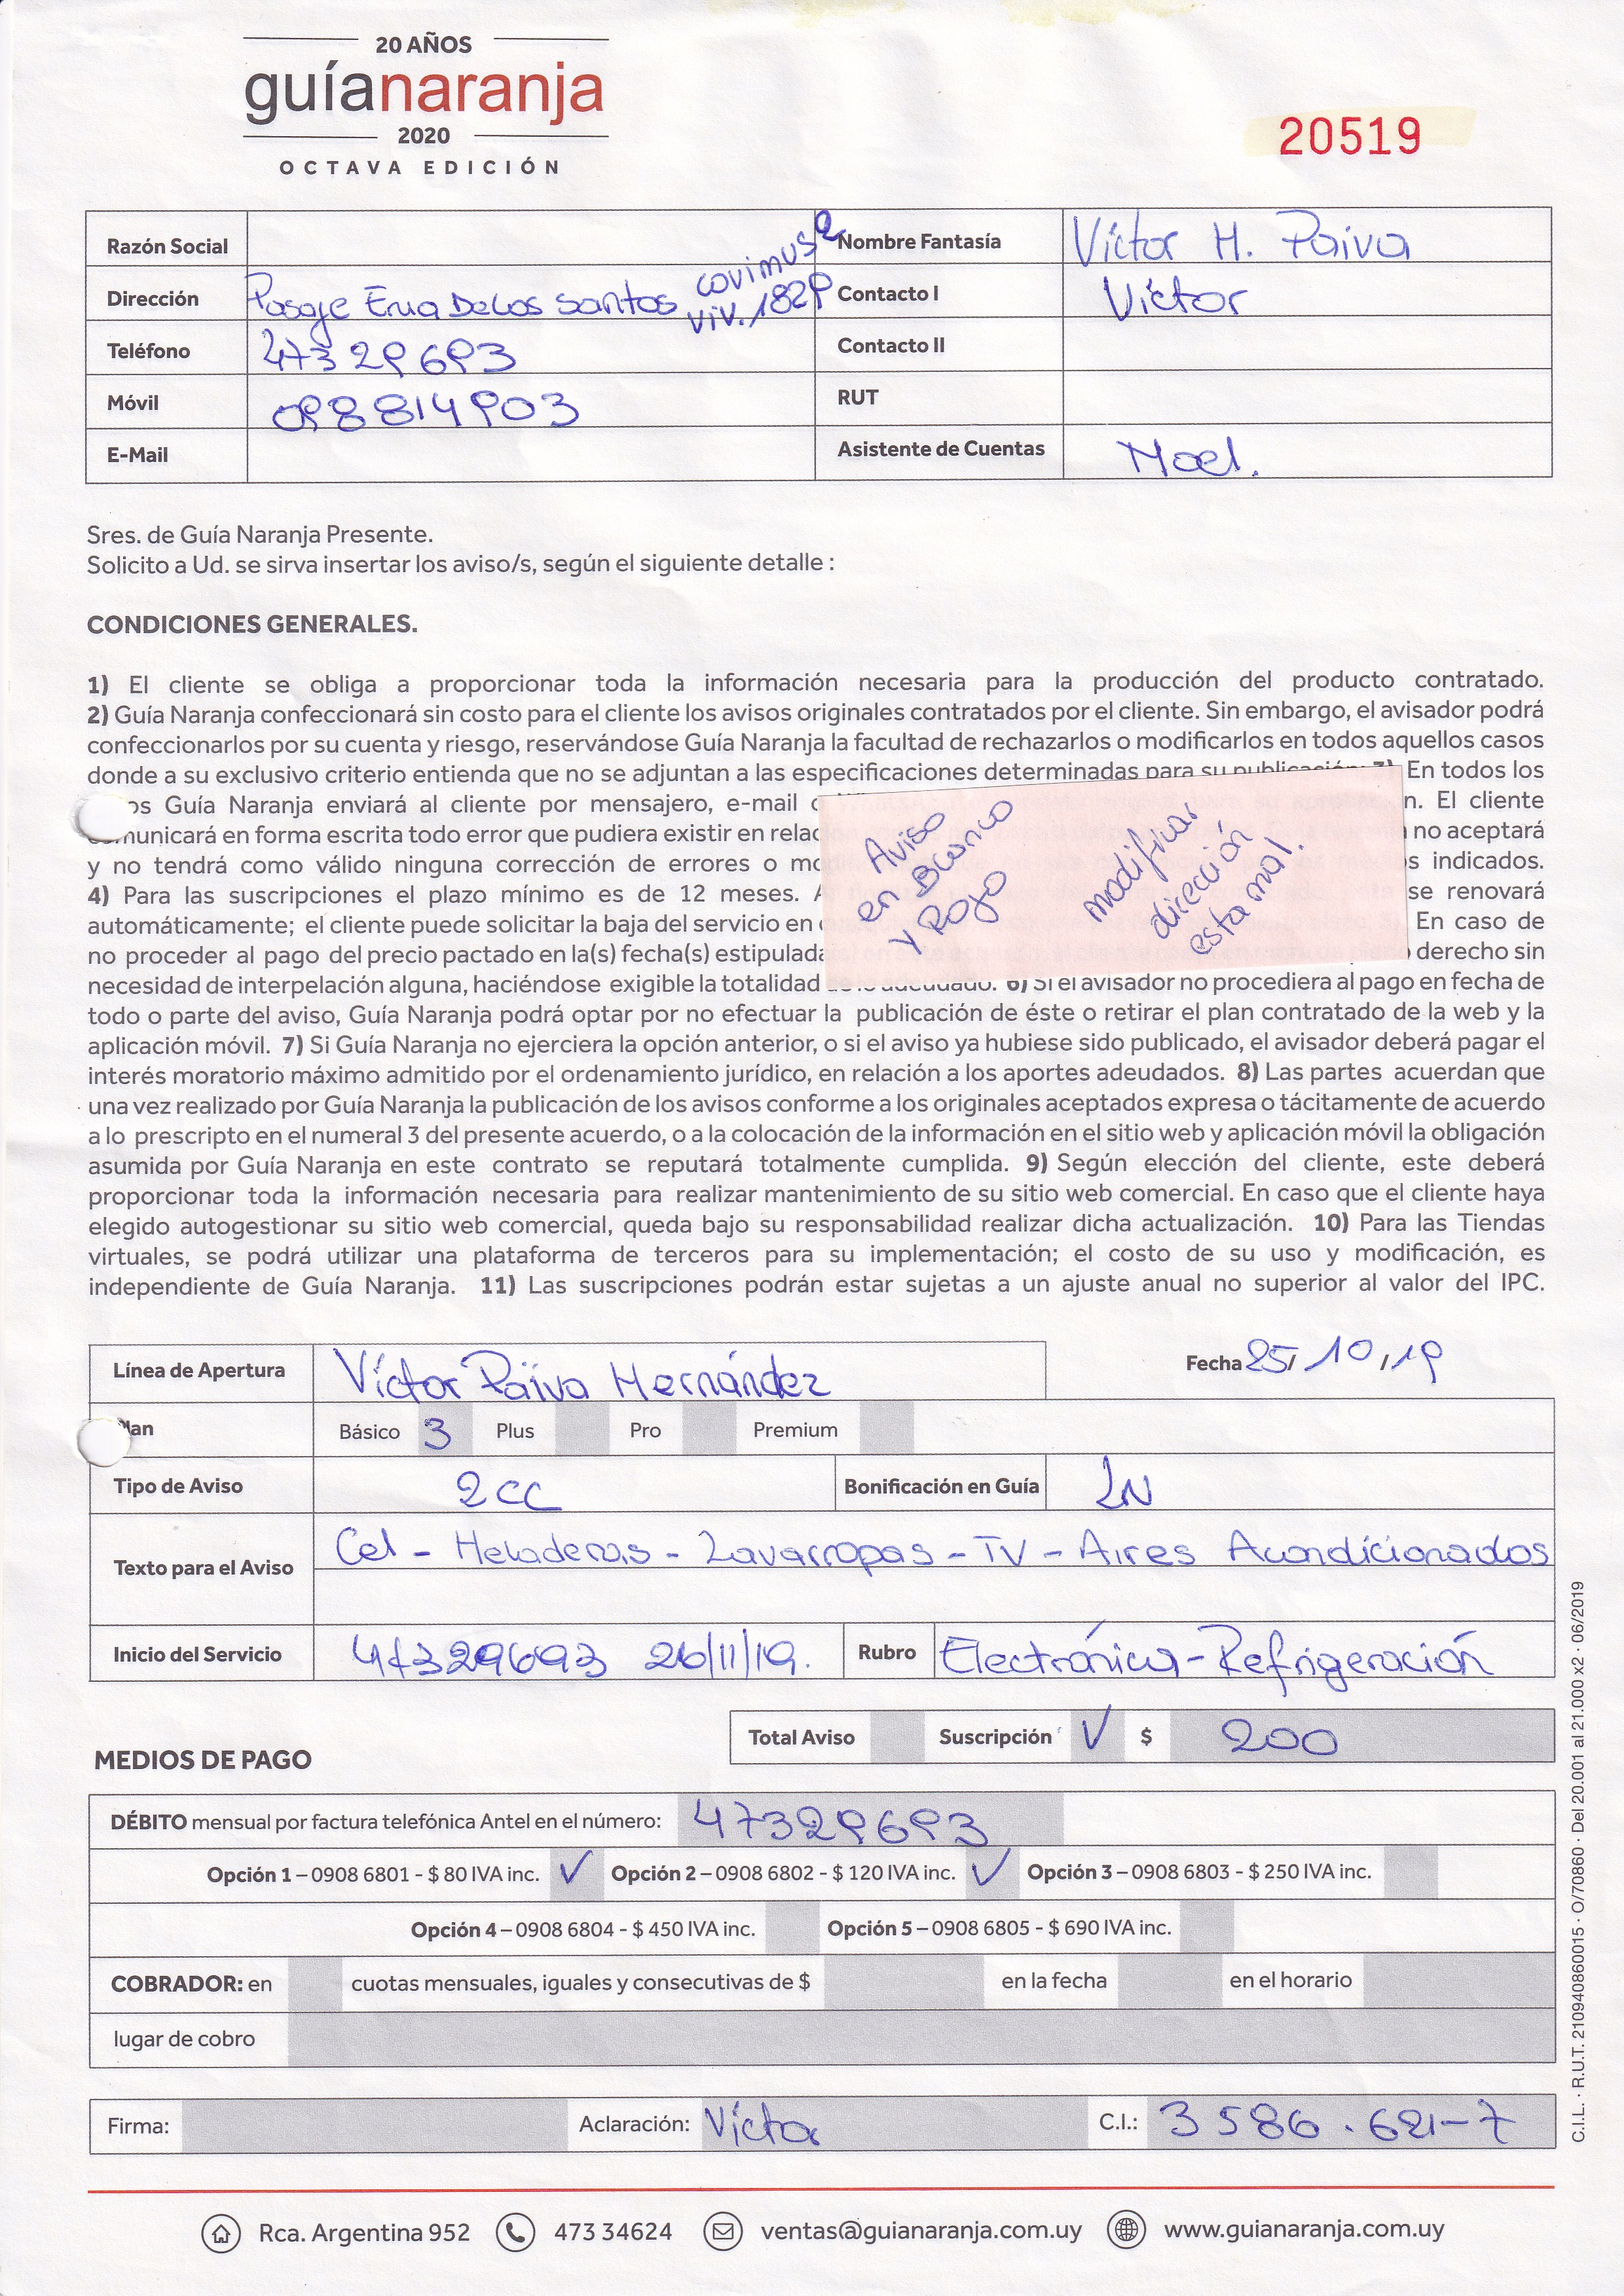 20 AÑOS
guíanaranja
2020
OCTAVA EDICIÓN
20519
Razón Social
Nombre Fantasía Víctor H. Paiva
Dirección Pasaje Ema De los Santos covimus 2 viv. 1829
Contacto I Víctor
Teléfono 47329693
Contacto II
Móvil 098814903
RUT
E-Mail
Asistente de Cuentas
Sres. de Guía Naranja Presente.
Solicito a Ud. se sirva insertar los aviso/s, según el siguiente detalle :
CONDICIONES GENERALES.
1) El cliente se obliga a proporcionar toda la información necesaria para la producción del producto contratado.
2) Guía Naranja confeccionará sin costo para el cliente los avisos originales contratados por el cliente. Sin embargo, el avisador podrá
confeccionarlos por su cuenta y riesgo, reservándose Guía Naranja la facultad de rechazarlos o modificarlos en todos aquellos casos
donde a su exclusivo criterio entienda que no se adjuntan a las especificaciones determinadas para su publicación. 3) En todos los
os Guía Naranja enviará al cliente por mensajero, e-mail n. El cliente
municará en forma escrita todo error que pudiera existir en relac no aceptará
y no tendrá como válido ninguna corrección de errores o mo s indicados.
4) Para las suscripciones el plazo mínimo es de 12 meses. A se renovará
automáticamente; el cliente puede solicitar la baja del servicio en En caso de
no proceder al pago del precio pactado en la(s) fecha(s) estipulada derecho sin
necesidad de interpelación alguna, haciéndose exigible la totalidad de lo adeudado. 6) Si el avisador no procediera al pago en fecha de
todo o parte del aviso, Guía Naranja podrá optar por no efectuar la publicación de éste o retirar el plan contratado de la web y la
aplicación móvil. 7) Si Guía Naranja no ejerciera la opción anterior, o si el aviso ya hubiese sido publicado, el avisador deberá pagar el
interés moratorio máximo admitido por el ordenamiento jurídico, en relación a los aportes adeudados. 8) Las partes acuerdan que
una vez realizado por Guía Naranja la publicación de los avisos conforme a los originales aceptados expresa o tácitamente de acuerdo
a lo prescripto en el numeral 3 del presente acuerdo, o a la colocación de la información en el sitio web y aplicación móvil la obligación
asumida por Guía Naranja en este contrato se reputará totalmente cumplida. 9) Según elección del cliente, este deberá
proporcionar toda la información necesaria para realizar mantenimiento de su sitio web comercial. En caso que el cliente haya
elegido autogestionar su sitio web comercial, queda bajo su responsabilidad realizar dicha actualización. 10) Para las Tiendas
virtuales, se podrá utilizar una plataforma de terceros para su implementación; el costo de su uso y modificación, es
independiente de Guía Naranja. 11) Las suscripciones podrán estar sujetas a un ajuste anual no superior al valor del IPC.
Aviso
en Blanco
y Rojo
modificar
dirección
esta mal.
Línea de Apertura Víctor Paiva Hernández
Fecha 25/ 10 /19
Plan Básico 3 Plus Pro Premium
Tipo de Aviso 2 CC Bonificación en Guía LN
Texto para el Aviso Cel - Heladeras - Lavarropas - TV - Aires Acondicionados
Inicio del Servicio 47329693 26/11/19. Rubro Electrónica - Refrigeración
Total Aviso Suscripción ✓ $ 200
MEDIOS DE PAGO
DÉBITO mensual por factura telefónica Antel en el número: 47329693
Opción 1 – 0908 6801 - $ 80 IVA inc. ✓ Opción 2 – 0908 6802 - $ 120 IVA inc. ✓ Opción 3 – 0908 6803 - $ 250 IVA inc.
Opción 4 – 0908 6804 - $ 450 IVA inc. Opción 5 – 0908 6805 - $ 690 IVA inc.
COBRADOR: en cuotas mensuales, iguales y consecutivas de $ en la fecha en el horario
lugar de cobro
Firma: Aclaración: Víctor C.I.: 3 586 . 621-7
Rca. Argentina 952 473 34624 ventas@guianaranja.com.uy www.guianaranja.com.uy
C.I.L. · R.U.T. 210940860015 · O/70860 · Del 20.001 al 21.000 x2 · 06/2019